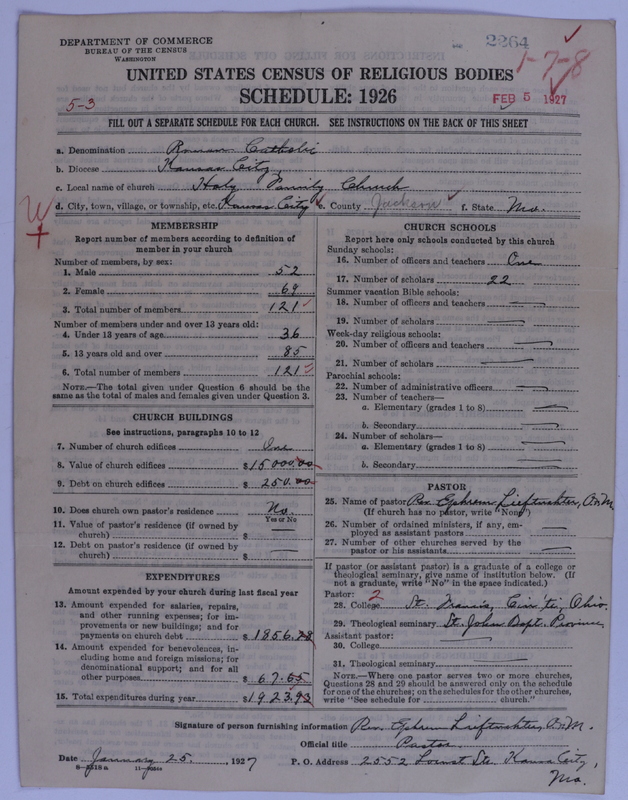 DEPARTMENT OF COMMERCE
BUREAU OF THE CENSUS
WASHINGTON
2264
1-7-8
UNITED STATES CENSUS OF RELIGIOUS BODIES
SCHEDULE: 1926
5-3
FEB 5 1927
FILL OUT A SEPARATE SCHEDULE FOR EACH CHURCH. SEE INSTRUCTIONS ON THE BACK OF THIS SHEET
a. Denomination Roman Catholic
b. Diocese Kansas City
c. Local name of church Holy Family Church
d. City, town, village, or township, etc. Kansas City e. County Jackson f. State Mo.
MEMBERSHIP
Report number of members according to definition of
member in your church
Number of members, by sex:
1. Male 52
2. Female 69
3. Total number of members 121
Number of members under and over 13 years old:
4. Under 13 years of age 36
5. 13 years old and over 85
6. Total number of members 121
NOTE.—The total given under Question 6 should be the
same as the total of males and females given under Question 3.
CHURCH BUILDINGS
See instructions, paragraphs 10 to 12
7. Number of church edifices One
8. Value of church edifices $15000.00
9. Debt on church edifices $250.00
10. Does church own pastor's residence? No
Yes or No
11. Value of pastor's residence (if owned by
church) $
12. Debt on pastor's residence (if owned by
church) $
EXPENDITURES
Amount expended by your church during last fiscal year
13. Amount expended for salaries, repairs,
and other running expenses; for im-
provements or new buildings; and for
payments on church debt $1856.28
14. Amount expended for benevolences, in-
cluding home and foreign missions; for
denominational support; and for all
other purposes $67.65
15. Total expenditures during year $1923.93
CHURCH SCHOOLS
Report here only schools conducted by this church
Sunday schools:
16. Number of officers and teachers One
17. Number of scholars 22
Summer vacation Bible schools:
18. Number of officers and teachers
19. Number of scholars
Week-day religious schools:
20. Number of officers and teachers
21. Number of scholars
Parochial schools:
22. Number of administrative officers
23. Number of teachers—
a. Elementary (grades 1 to 8)
b. Secondary
24. Number of scholars—
a. Elementary (grades 1 to 8)
b. Secondary
PASTOR
25. Name of pastor Rev. Ephrem
(If church has no pastor, write "None")
26. Number of ordained ministers, if any, em-
ployed as assistant pastors
27. Number of other churches served by the
pastor or his assistants
If pastor (or assistant pastor) is a graduate of a college or
theological seminary, give name of institution below. (If
not a graduate, write "No" in the space indicated.)
Pastor: 2
28. College St. Francis, Cin'ti, Ohio.
29. Theological seminary St. John Bapt. Province
Assistant pastor:
30. College
31. Theological seminary
NOTE.—Where one pastor serves two or more churches,
Questions 28 and 29 should be answered only on the schedule
for one of the churches; on the schedules for the other churches,
write "See schedule for church."
Signature of person furnishing information Rev. Ephrem
Official title Pastor
Date January 25, 1927 P. O. Address 2552 Locust Str. Kansas City,
Mo.